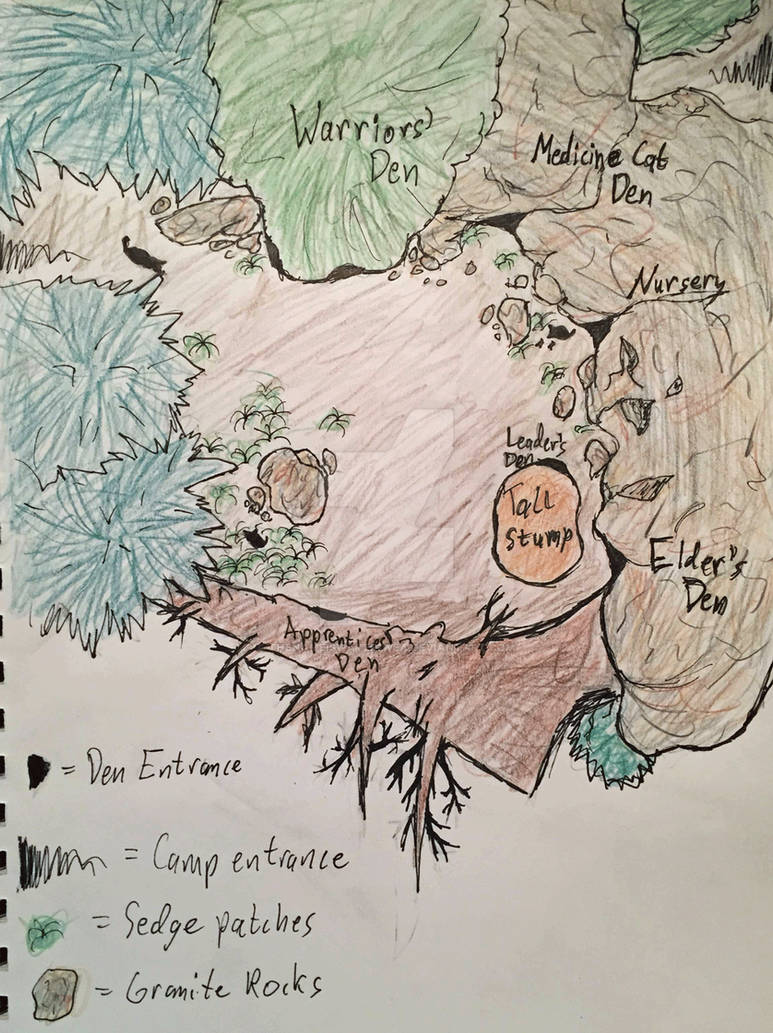 Warriors'
Den
Medicine Cat
Den
Nursery
Leader's
Den
Tall
stump
Elder's
Den
Apprentices'
Den
= Den Entrance
= Camp entrance
= Sedge patches
= Granite Rocks